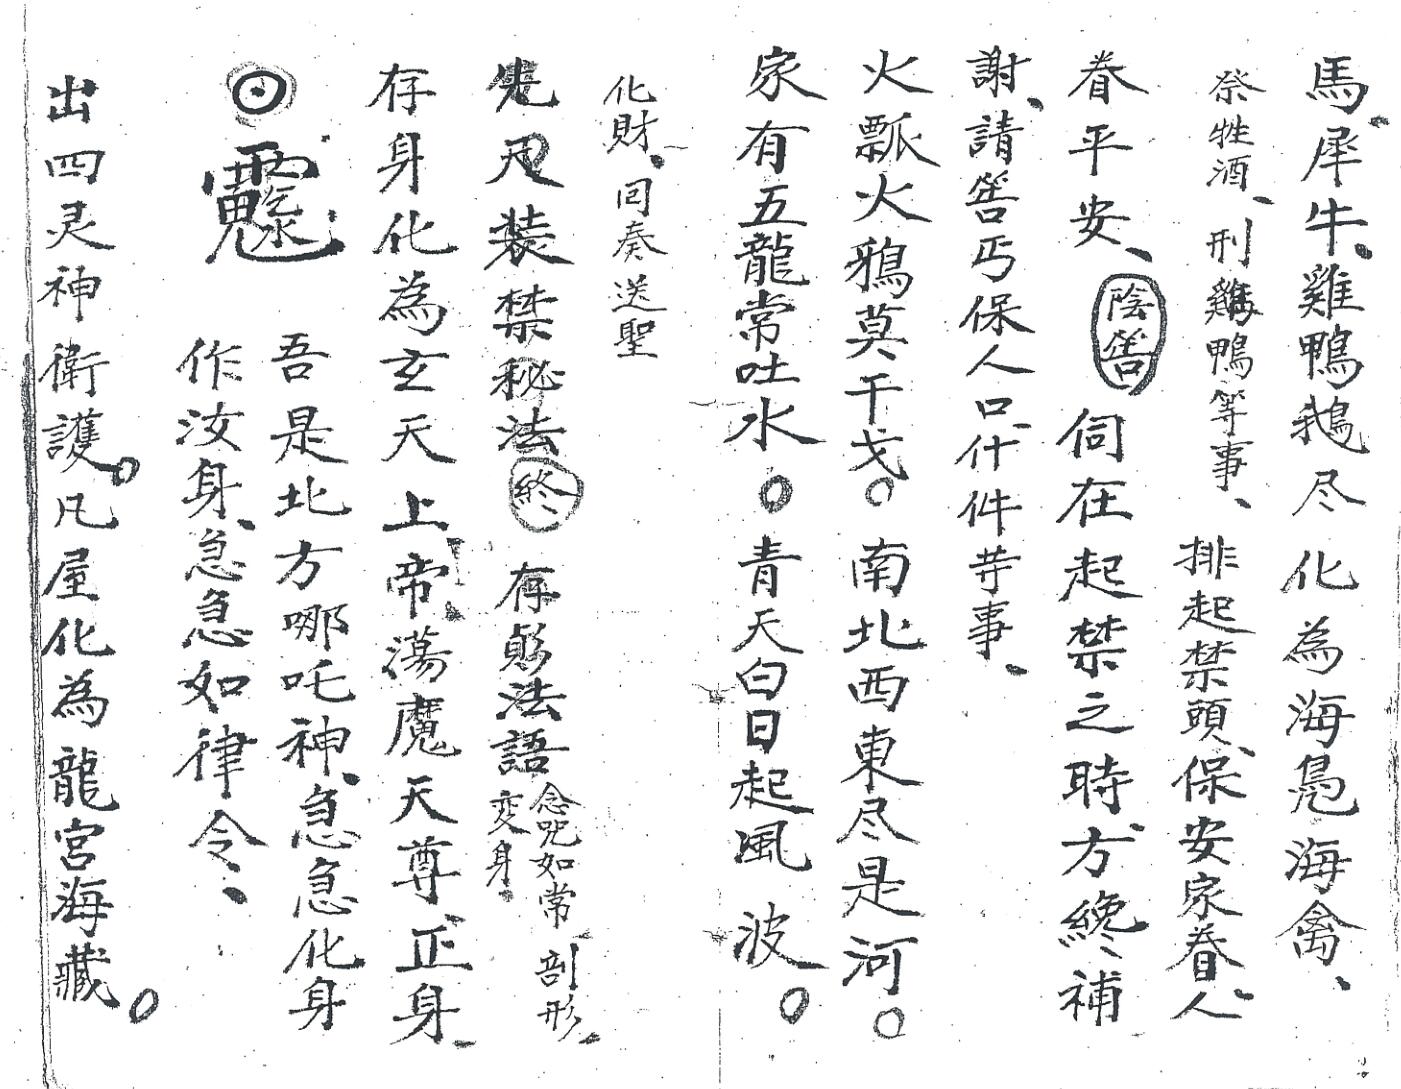 馬、犀牛、雞鴨鵝尽化為海凫海禽、
祭牲酒、刑鷄鴨等事、排起禁頭、保安家眷人、
眷平安、陰筶伺在起禁之時、方纔補
謝、請筶丐保人口什件䒭事、
火瓢火鴉莫干戈。南北西東尽是河。
家有五龍常吐水。青天白日起風波。
化財、回奏送聖
先尺装禁秘法終、存法語念咒如常剖形、
变身、
存身化為玄天上帝蕩魔天尊正身、
吾是北方哪吒神、急急化身
作汝身、急急如律令、
出四灵神衛護。凡屋化為龍宮海藏。